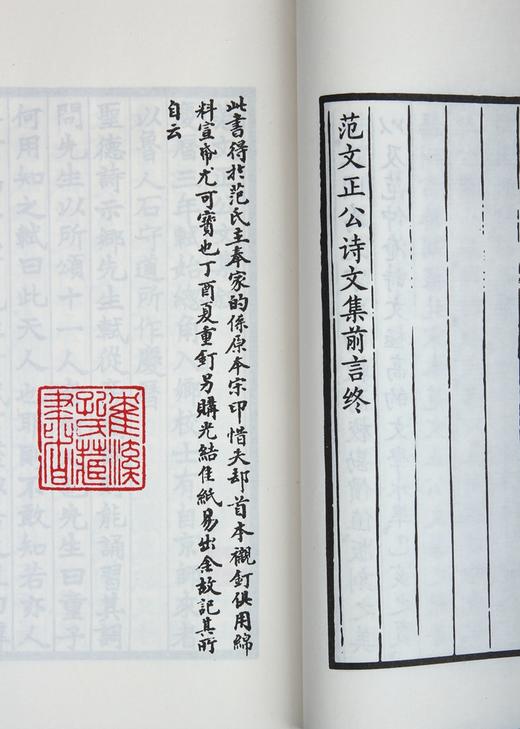 范文正公诗文集前言终
此書得於范氏主奉家的係原本宗印惜失却首本襯釘俱用綿
料宣帋尤可寶也丁酉夏重釘另購光結佳紙易出余故記其所
自云